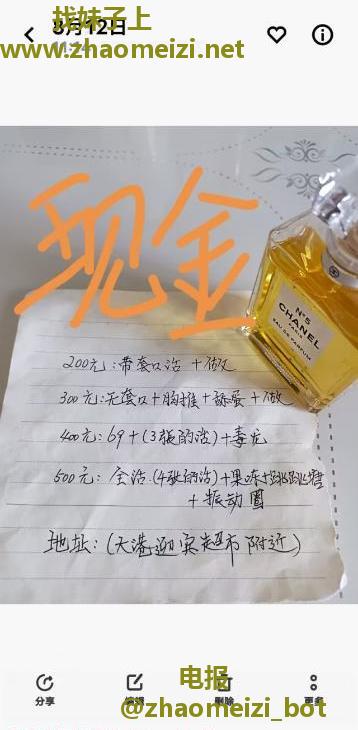 找妹子上
8月12日
www.zhaomeizi.net
现金
N°5
CHANEL
PARIS
EAU DE PARFUM
200元:带套口活 +1做
300元:无套口+胸推+舔蛋+1做
400元:69+(3张的活)+毒龙
500元: 全活.(4张的活)+果冻+跳跳糖
+振动圈
地址:(大港迎宾超市附近)
电报
分享
编辑
删除
更多
@zhaomeizi_bot